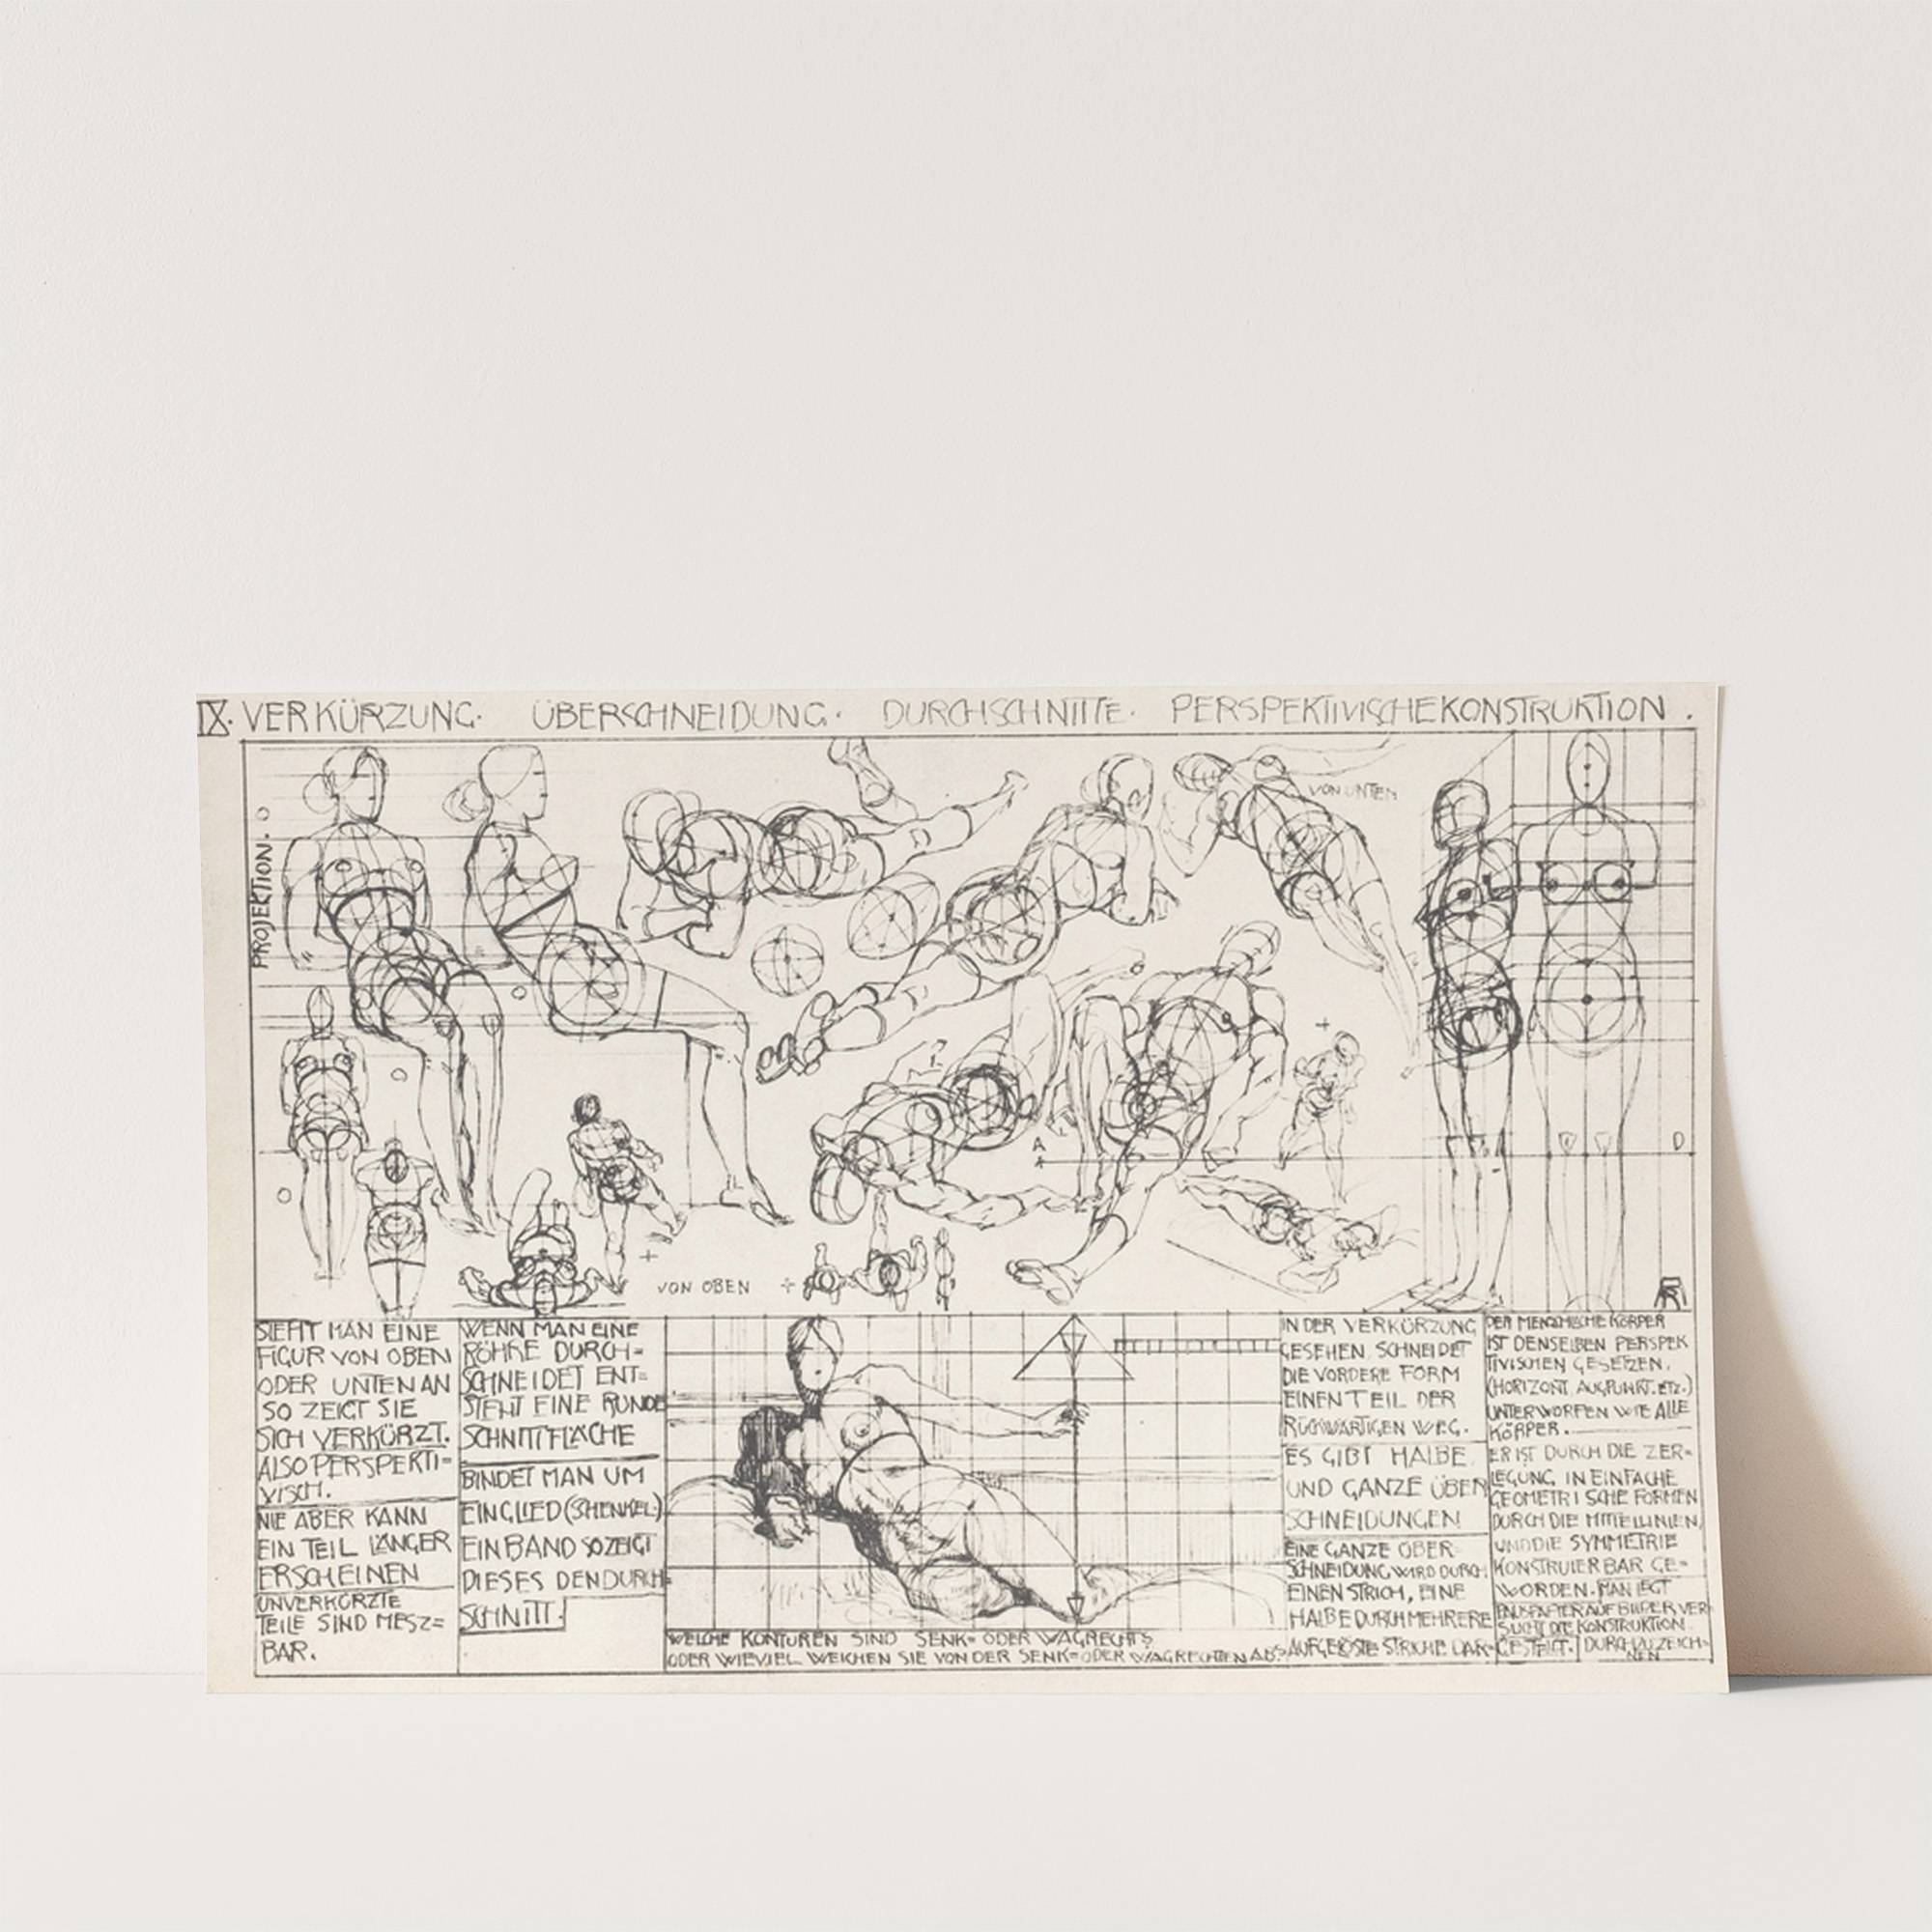 IX. VERKÜRZUNG. ÜBERSCHNEIDUNG. DURCHSCHNITTE. PERSPEKTIVISCHE KONSTRUKTION.
PROJEKTION.
VON UNTEN
A
D
VON OBEN
SIEHT MAN EINE
FIGUR VON OBEN
ODER UNTEN AN
SO ZEIGT SIE
SICH VERKÜRZT.
ALSO PERSPEKTI=
VISCH.
NIE ABER KANN
EIN TEIL LÄNGER
ERSCHEINEN
UNVERKÜRZTE
TEILE SIND MESZ=
BAR.
WENN MAN EINE
RÖHRE DURCH=
SCHNEIDET ENT=
STEHT EINE RUNDE
SCHNITTFLÄCHE
BINDET MAN UM
EIN GLIED (SCHENKEL)
EIN BAND SO ZEIGT
DIESES DEN DURCH=
SCHNITT.
WELCHE KONTUREN SIND SENK= ODER WAGRECHT?
ODER WIEVIEL WEICHEN SIE VON DER SENK= ODER WAGRECHTEN AB?
IN DER VERKÜRZUNG
GESEHEN, SCHNEIDET
DIE VORDERE FORM
EINEN TEIL DER
RÜCKWÄRTIGEN WEG.
ES GIBT HALBE
UND GANZE ÜBER
SCHNEIDUNGEN
EINE GANZE ÜBER=
SCHNEIDUNG WIRD DURCH
EINEN STRICH, EINE
HALBE DURCH MEHRERE
AUFGELÖSTE STRICHE DAR=
GESTELLT.
DER MENSCHLICHE KÖRPER
IST DENSELBEN PERSPEK
TIVISCHEN GESETZEN,
(HORIZONT, AUGPUNKT. ETZ.)
UNTERWORFEN WIE ALLE
KÖRPER.
ER IST DURCH DIE ZER=
LEGUNG IN EINFACHE
GEOMETRISCHE FORMEN
DURCH DIE MITTELLINIEN,
UND DIE SYMMETRIE
KONSTRUIERBAR GE=
WORDEN. MAN LEGT
PAUSPAPIER AUF BILDER VER
SUCHT DIE KONSTRUKTION
DURCHZUZEICH=
NEN